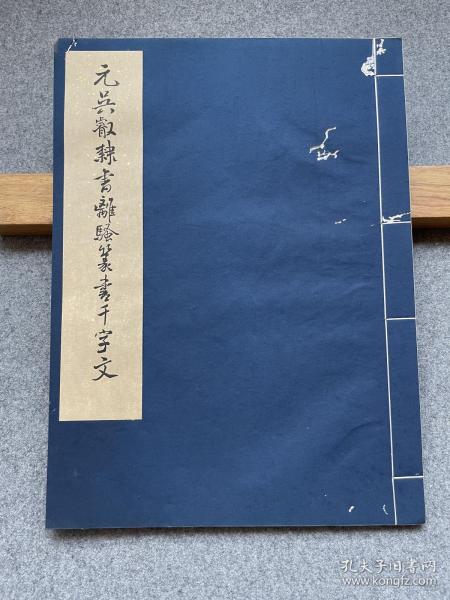 元吳叡隸書離騷篆書千字文
孔夫子旧书网
www.kongfz.com